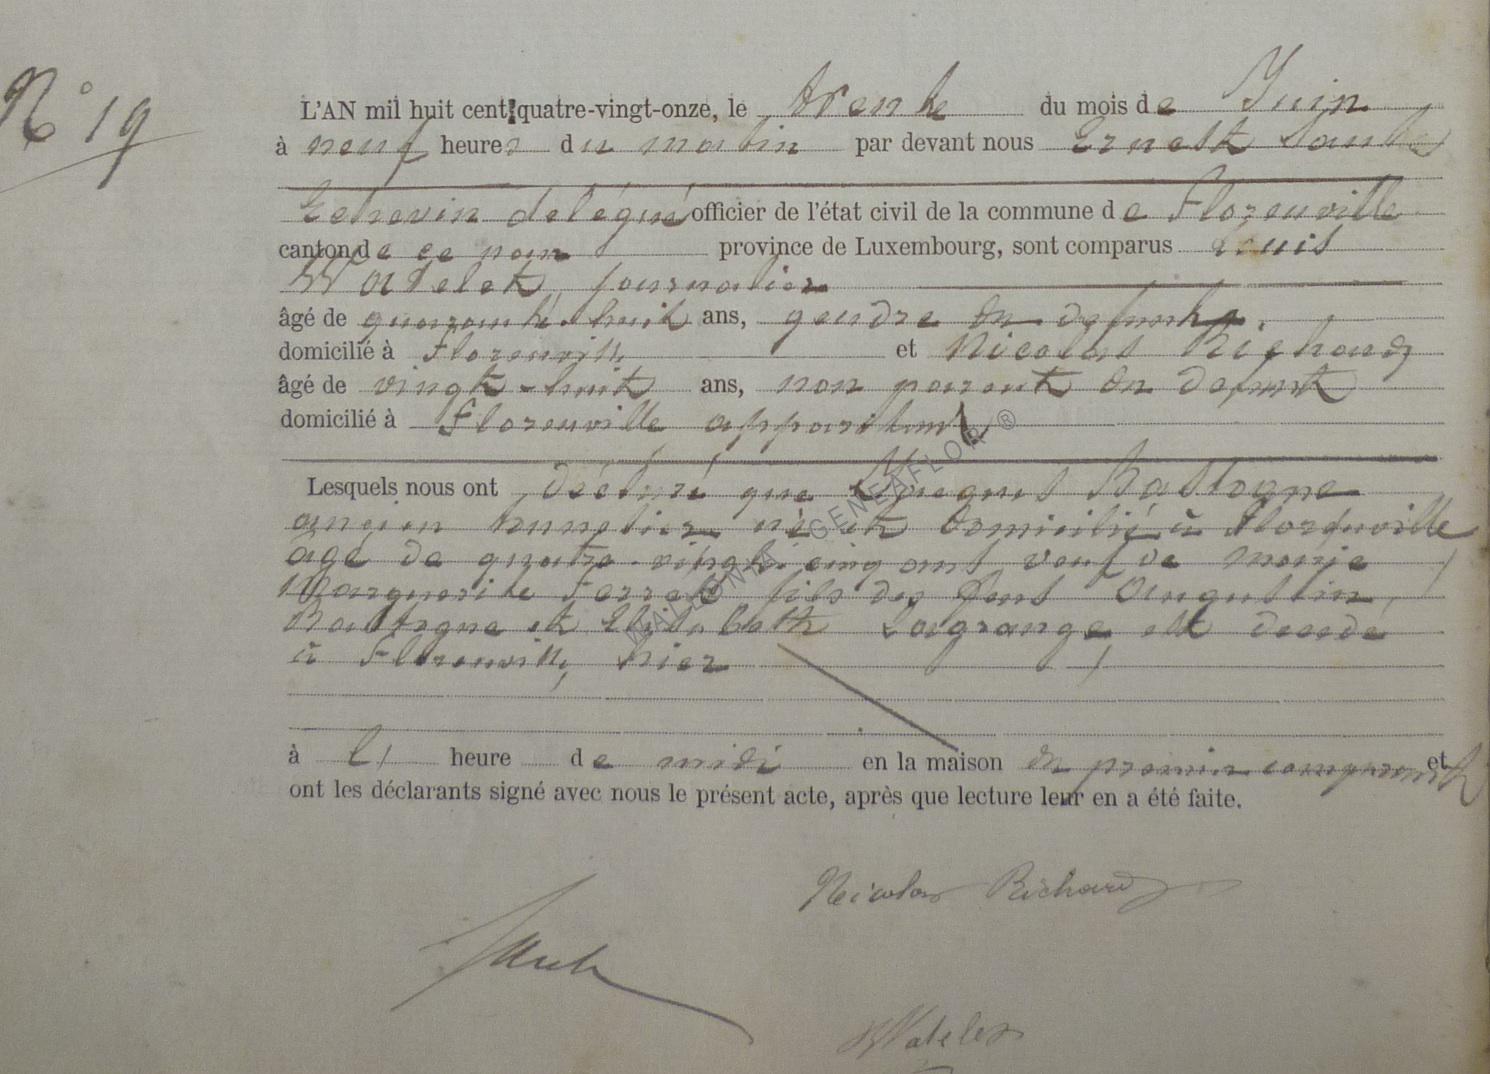 N° 19
L'AN mil huit cent quatre-vingt-onze, le trente du mois de Juin
à neuf heures du matin par devant nous Ernest Sauté
Echevin délégué officier de l'état civil de la commune de Florenville
canton de ce nom province de Luxembourg, sont comparus Louis
Watelet, journalier
âgé de quarante-huit ans, gendre du défunt
domicilié à Florenville et Nicolas Richard
âgé de vingt-huit ans, non parent du défunt
domicilié à Florenville appariteur
Lesquels nous ont déclaré que Jacques Bastogne
ancien tonnelier né et domicilié à Florenville
âgé de quatre-vingt-cinq ans veuf de Marie
Marguerite fils des feus Augustin
Bastogne et Elisabeth Lagrange est décédé
à Florenville, hier
à l' heure de midi en la maison du premier comparant et
ont les déclarants signé avec nous le présent acte, après que lecture leur en a été faite.
Nicolas Richard
Watelet
WALLONIA GENEAFLOR ®